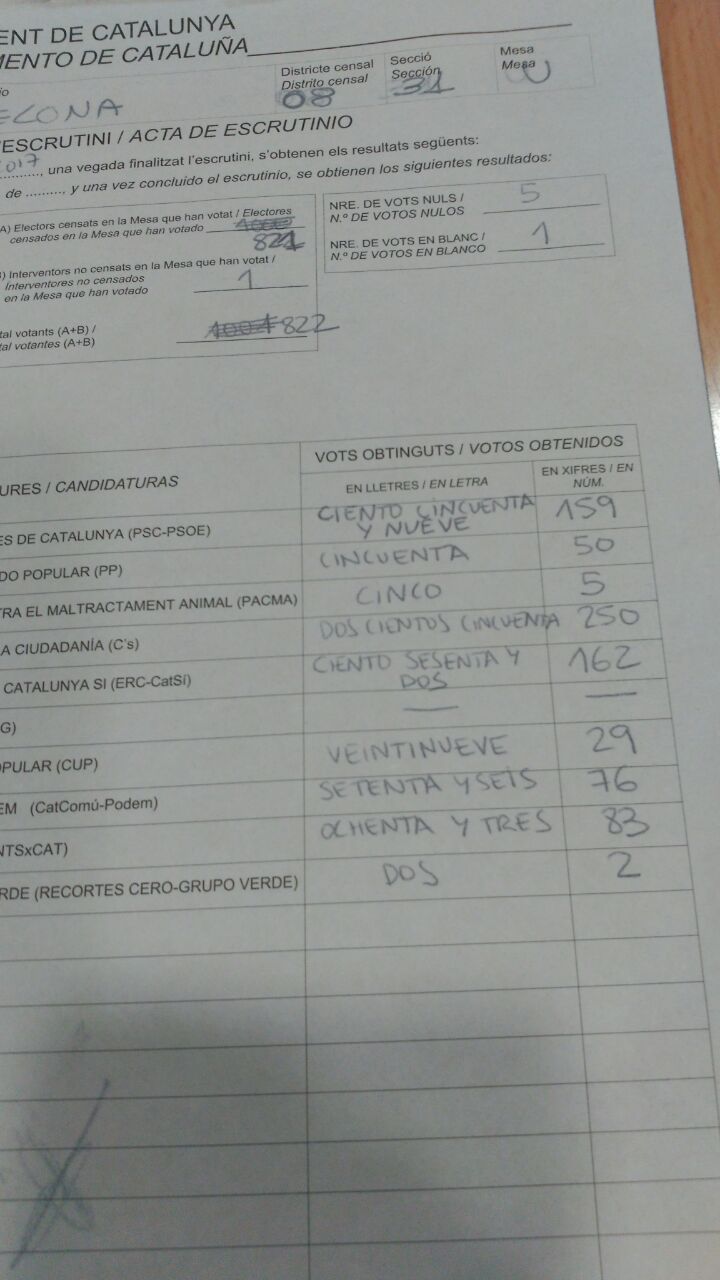 ENT DE CATALUNYA
MENTO DE CATALUÑA
Districte censal
Distrito censal
08
Secció
Sección
31
Mesa
Mesa
U
io
ECONA
ESCRUTINI / ACTA DE ESCRUTINIO
2017
............, una vegada finalitzat l'escrutini, s'obtenen els resultats següents:
de ........., y una vez concluido el escrutinio, se obtienen los siguientes resultados:
A) Electors censats en la Mesa que han votat / Electores
censados en la Mesa que han votado
821
) Interventors no censats en la Mesa que han votat /
Interventores no censados
en la Mesa que han votado
1
tal votants (A+B) /
tal votantes (A+B)
822
NRE. DE VOTS NULS /
N.º DE VOTOS NULOS
5
NRE. DE VOTS EN BLANC /
N.º DE VOTOS EN BLANCO
1
URES / CANDIDATURAS
VOTS OBTINGUTS / VOTOS OBTENIDOS
EN LLETRES / EN LETRA
EN XIFRES / EN
NÚM.
ES DE CATALUNYA (PSC-PSOE)
CIENTO CINCUENTA
Y NUEVE
159
DO POPULAR (PP)
CINCUENTA
50
TRA EL MALTRACTAMENT ANIMAL (PACMA)
CINCO
5
A CIUDADANÍA (C's)
DOS CIENTOS CINCUENTA
250
CATALUNYA SI (ERC-CatSí)
CIENTO SESENTA Y
DOS
162
G)
—
—
OPULAR (CUP)
VEINTINUEVE
29
EM (CatComú-Podem)
SETENTA Y SEIS
76
NTSxCAT)
OCHENTA Y TRES
83
RDE (RECORTES CERO-GRUPO VERDE)
DOS
2